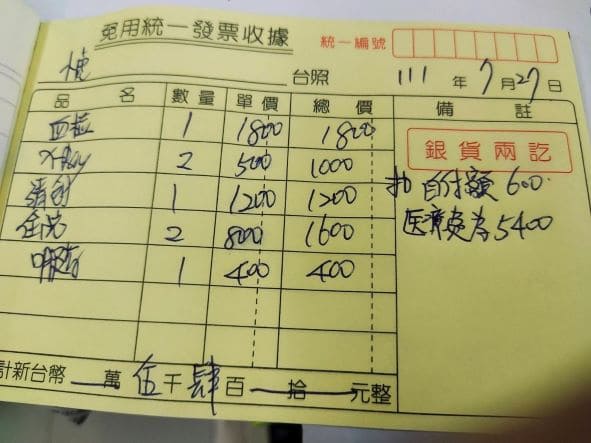 免用統一發票收據
統一編號
台照
111年7月27日
品名 數量 單價 總價 備註
血檢 1 1800 1800
X-Ray 2 500 1000
清創 1 1200 1200
2 800 1600
1 400 400
銀貨兩訖
扣 自付額 600.
医療變為 5400
計新台幣 萬 伍 千 肆 百 拾 元整